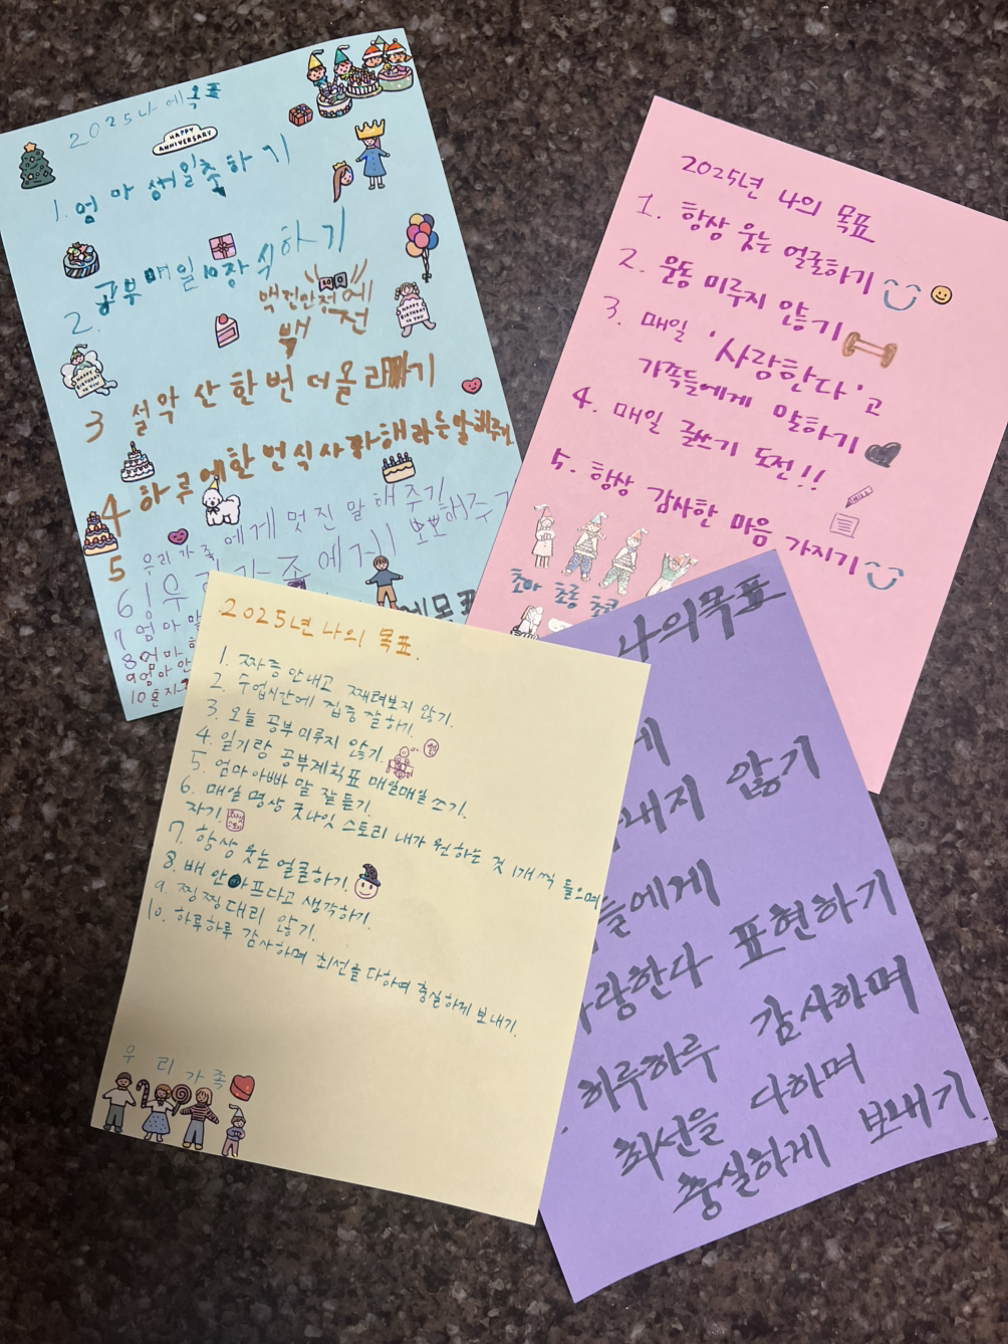 2025 나에 목표
HAPPY ANNIVERSARY
1. 엄마 생일축하기
2. 공부 매일 10장 식하기
백점만점에
백점
3 설악산 한번 더 올라가기
4 하루에 한번 식 사랑해라는 말 해줘
5 우리 가족에게 멋진 말 해주기
6 우리 가족에게 뽀뽀해주
7 엄마 말
8 엄마
9 엄마 안
10 혼자
HAPPY BIRTHDAY TO YOU
HAPPY BIRTHDAY TO YOU
2025년 나의 목표
1. 항상 웃는 얼굴하기
2. 운동 미루지 않기
3. 매일 '사랑한다'고
가족들에게 말하기
4. 매일 글쓰기 도전!!
5. 항상 감사한 마음 가지기
초아 초롱
2025년 나의 목표.
1. 짜증 안내고 째려보지 않기.
2. 수업시간에 집중 잘하기.
3. 오늘 공부 미루지 않기.
4. 일기랑 공부계획표 매일매일 쓰기.
5. 엄마아빠 말 잘 듣기.
6. 매일 명상 굿나잇 스토리 내가 원하는 것 1개씩 들으며
자기.
7. 항상 웃는 얼굴하기.
8. 배 안아프다고 생각하기.
9. 찡찡대지 않기.
10. 하루하루 감사하며 최선을 다하며 충실하게 보내기.
우리가족
나의목표
게
내지 않기
들에게
사랑한다 표현하기
하루하루 감사하며
최선을 다하며
충실하게 보내기.